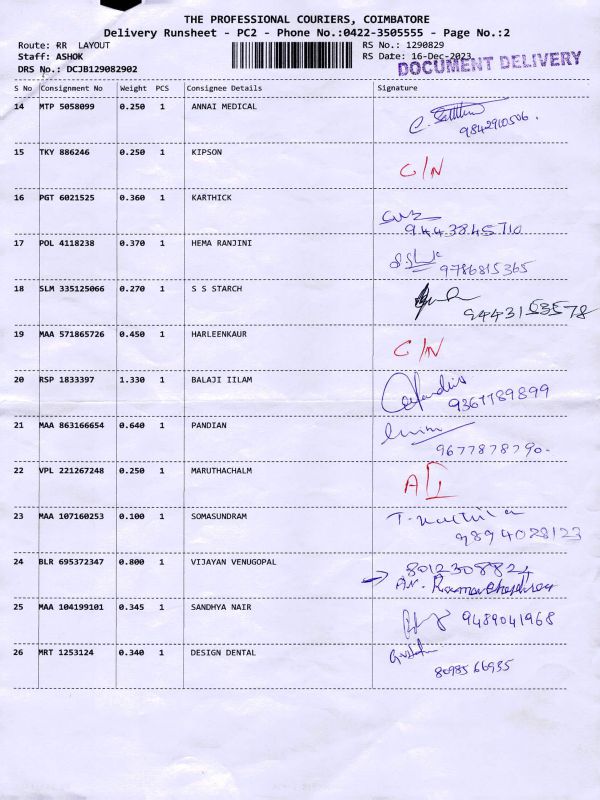 THE PROFESSIONAL COURIERS, COIMBATORE
Delivery Runsheet - PC2 - Phone No.:0422-3505555 - Page No.:2
Route: RR LAYOUT RS No.: 1290829
Staff: ASHOK RS Date: 16-Dec-2023
DRS No.: DCJB129082902 DOCUMENT DELIVERY
S No Consignment No Weight PCS Consignee Details Signature
14 MTP 5058099 0.250 1 ANNAI MEDICAL
9842910506.
15 TKY 886246 0.250 1 KIPSON C/N
16 PGT 6021525 0.360 1 KARTHICK
9443845710
17 POL 4118238 0.370 1 HEMA RANJINI
9786815365
18 SLM 335125066 0.270 1 S S STARCH
9443153578
19 MAA 571865726 0.450 1 HARLEENKAUR C/N
20 RSP 1833397 1.330 1 BALAJI IILAM
9367789899
21 MAA 863166654 0.640 1 PANDIAN
9677878790-
22 VPL 221267248 0.250 1 MARUTHACHALM
23 MAA 107160253 0.100 1 SOMASUNDRAM
9894028123
24 BLR 695372347 0.800 1 VIJAYAN VENUGOPAL 8012308824
25 MAA 104199101 0.345 1 SANDHYA NAIR 9489041968
26 MRT 1253124 0.340 1 DESIGN DENTAL
8098566955